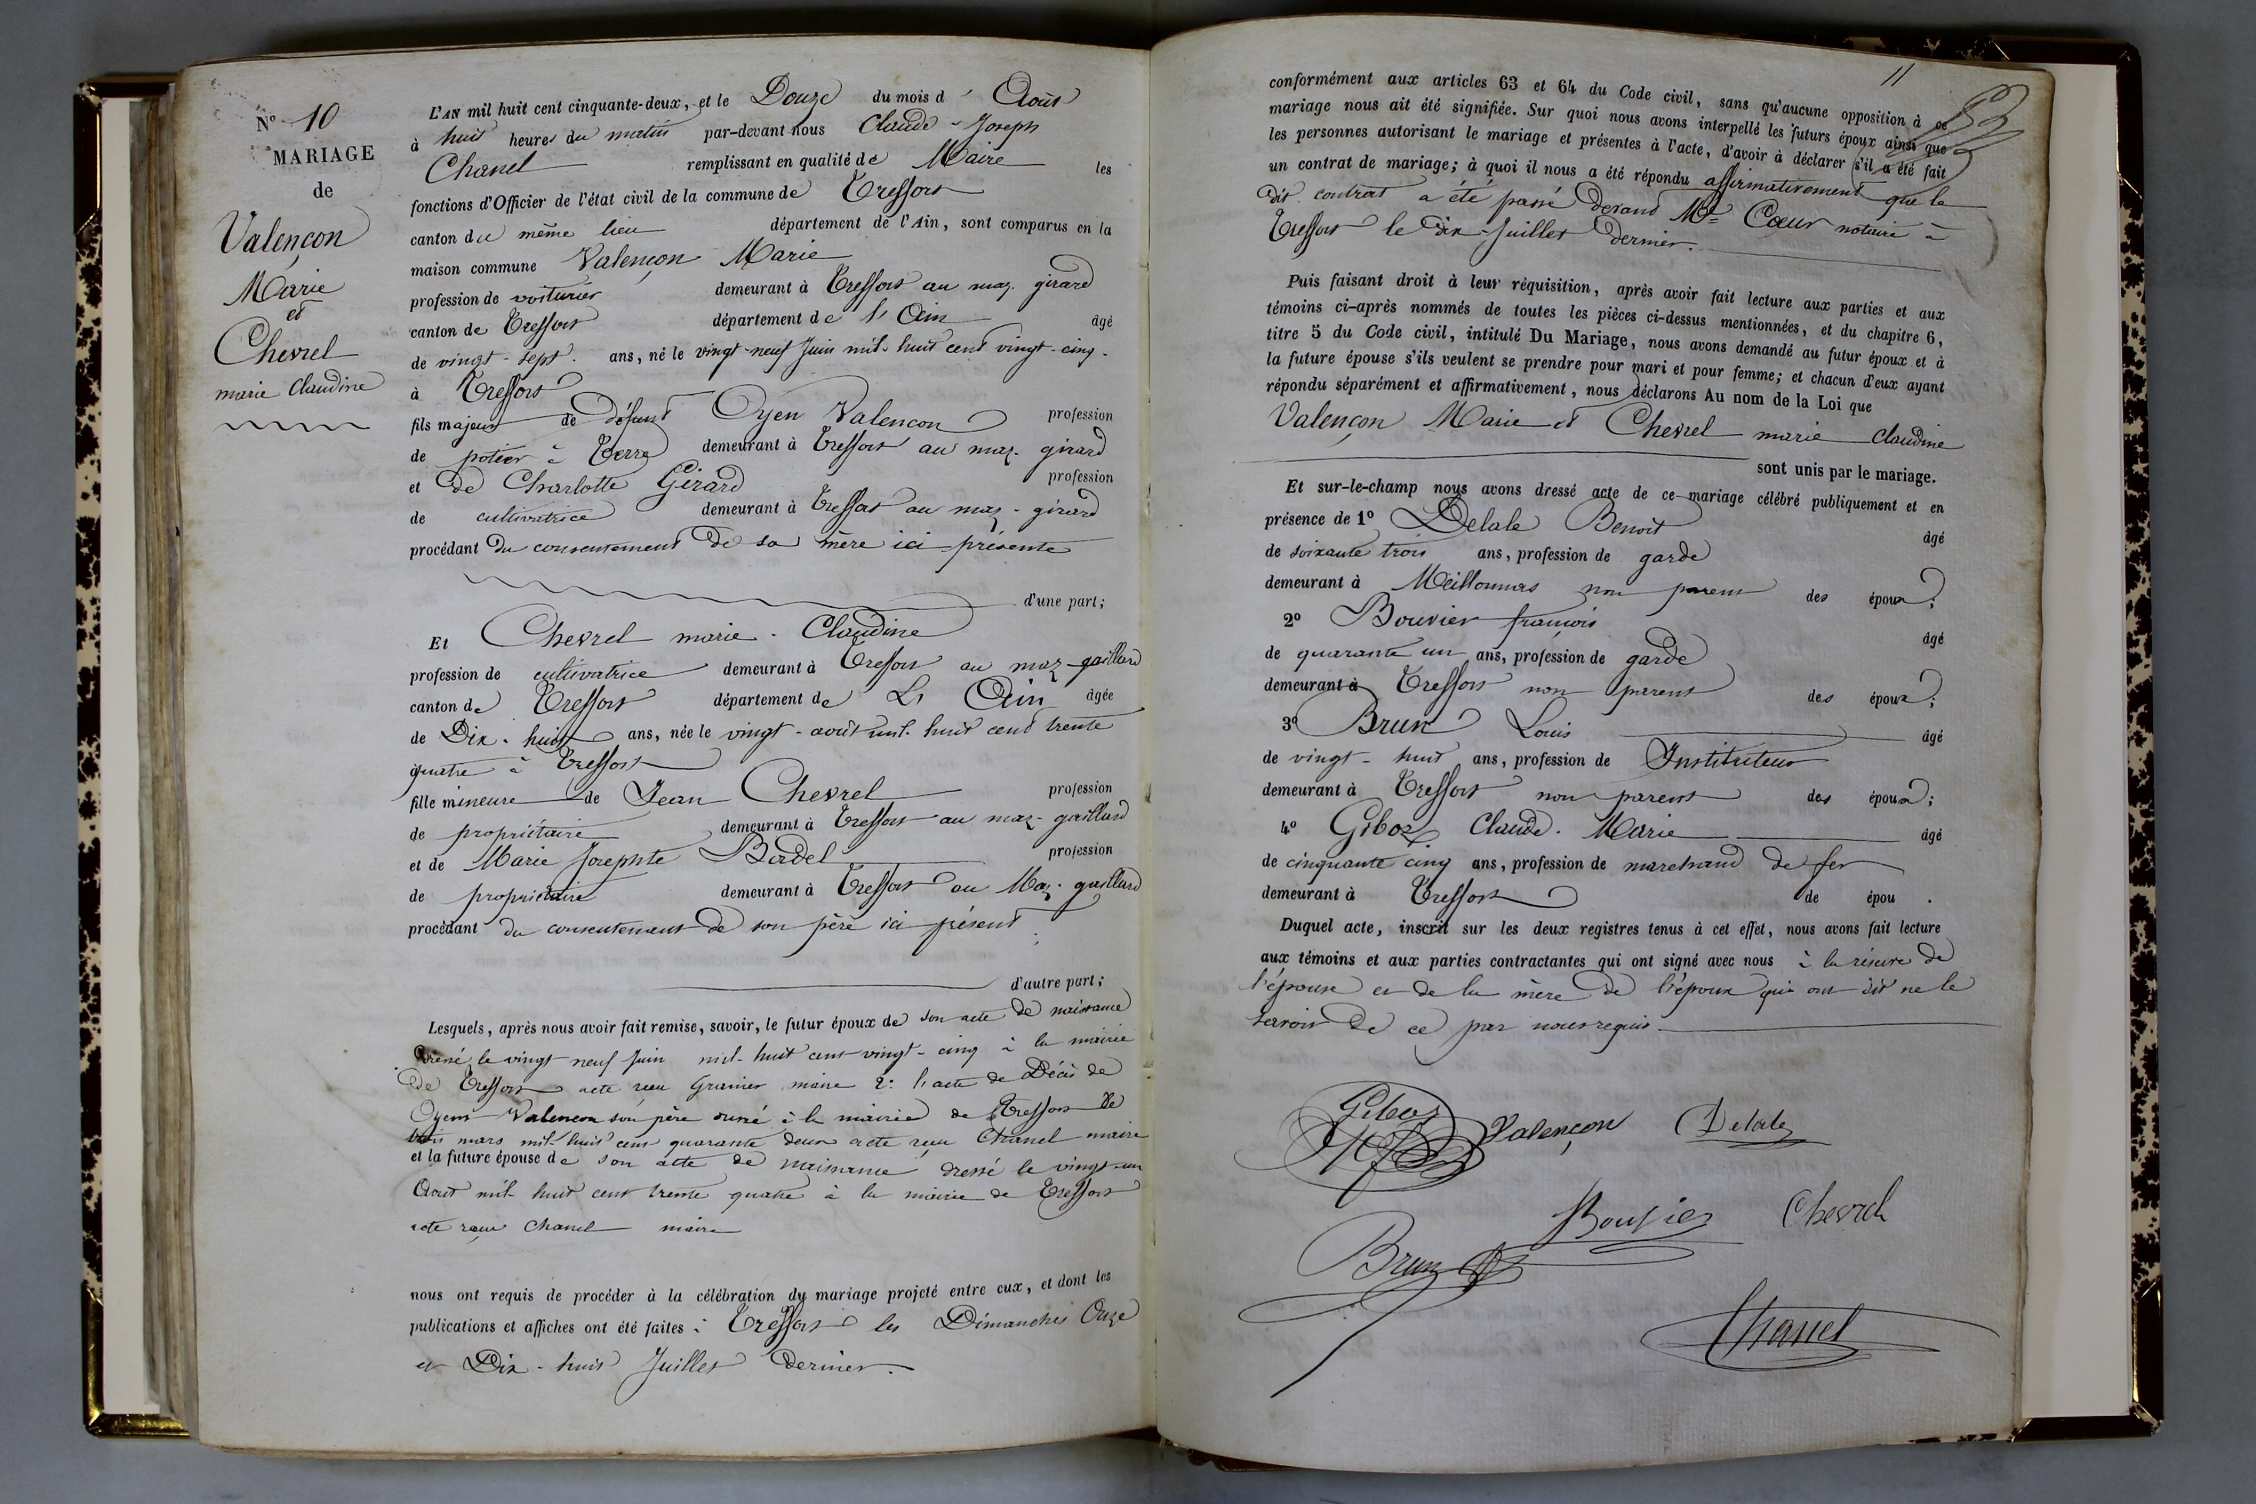 Nº 10
MARIAGE
de
Valençon
Marie
et
Chevrel
marie Claudine
L'AN mil huit cent cinquante-deux, et le Douze du mois d' Août
à huit heures du matin par-devant nous Claude-Joseph
Chanel remplissant en qualité de Maire les
fonctions d'Officier de l'état civil de la commune de Treffort
canton du même lieu département de l'Ain, sont comparus en la
maison commune Valençon Marie
profession de voiturier demeurant à Treffort au maz. girard
canton de Treffort département de l'Ain âgé
de vingt-sept. ans, né le vingt-neuf Juin mil-huit cent vingt-cinq.
à Treffort
fils majeur de défunt Oyen Valencon profession
de potier à Terre demeurant à Treffort au maz. girard
et de Charlotte Girard profession
de cultivatrice demeurant à Treffort au maz-girard
procédant du consentement de sa mère ici présente
d'une part;
Et Chevrel marie-Claudine
profession de cultivatrice demeurant à Treffort au maz-gaillard
canton de Treffort département de L'Ain âgée
de Dix-huit ans, née le vingt-août mil-huit cent trente
quatre à Treffort
fille mineure de Jean Chevrel profession
de propriétaire demeurant à Treffort au maz-gaillard
et de Marie Josephte Bordel profession
de propriétaire demeurant à Treffort au Maz-gaillard
procédant du consentement de son père ici présent
d'autre part;
Lesquels, après nous avoir fait remise, savoir, le futur époux de son acte de naissance
dressé le vingt neuf Juin mil-huit cent vingt-cinq à la mairie
de Treffort acte reçu Grunier maire 2º l'acte de Décès de
Oyen Valencon son père dressé à la mairie de Treffort le
trois mars mil-huit cent quarante deux acte reçu Chanel maire
et la future épouse de son acte de naissance dressé le vingt-un
Août mil-huit cent trente quatre à la mairie de Treffort
acte reçu Chanel maire
nous ont requis de procéder à la célébration du mariage projeté entre eux, et dont les
publications et affiches ont été faites à Treffort les Dimanches Onze
et Dix-huit Juillet dernier.
11
conformément aux articles 63 et 64 du Code civil, sans qu'aucune opposition à ce
mariage nous ait été signifiée. Sur quoi nous avons interpellé les futurs époux ainsi que
les personnes autorisant le mariage et présentes à l'acte, d'avoir à déclarer s'il a été fait
un contrat de mariage; à quoi il nous a été répondu affirmativement que le
dit contrat a été passé devant Me Cœur notaire à
Treffort le Dix-Juillet dernier.
Puis faisant droit à leur réquisition, après avoir fait lecture aux parties et aux
témoins ci-après nommés de toutes les pièces ci-dessus mentionnées, et du chapitre 6,
titre 5 du Code civil, intitulé Du Mariage, nous avons demandé au futur époux et à
la future épouse s'ils veulent se prendre pour mari et pour femme; et chacun d'eux ayant
répondu séparément et affirmativement, nous déclarons Au nom de la Loi que
Valençon Marie et Chevrel marie claudine
sont unis par le mariage.
Et sur-le-champ nous avons dressé acte de ce mariage célébré publiquement et en
présence de 1º Delale Benoit âgé
de soixante trois ans, profession de garde
demeurant à Meillonnas non parent des époux;
2º Bouvier françois âgé
de quarante un ans, profession de garde
demeurant à Treffort non parent des époux;
3º Brun Louis âgé
de vingt-huit ans, profession de Instituteur
demeurant à Treffort non parent des époux;
4º Giboz Claude-Marie âgé
de cinquante cinq ans, profession de marchand de fer
demeurant à Treffort de épou .
Duquel acte, inscrit sur les deux registres tenus à cet effet, nous avons fait lecture
aux témoins et aux parties contractantes qui ont signé avec nous à la réserve de
l'épouse et de la mère de l'époux qui ont dit ne le
savoir de ce par nous requis.
Giboz Valençon Delale
Bouvier Chevrel
Brun
Chanel